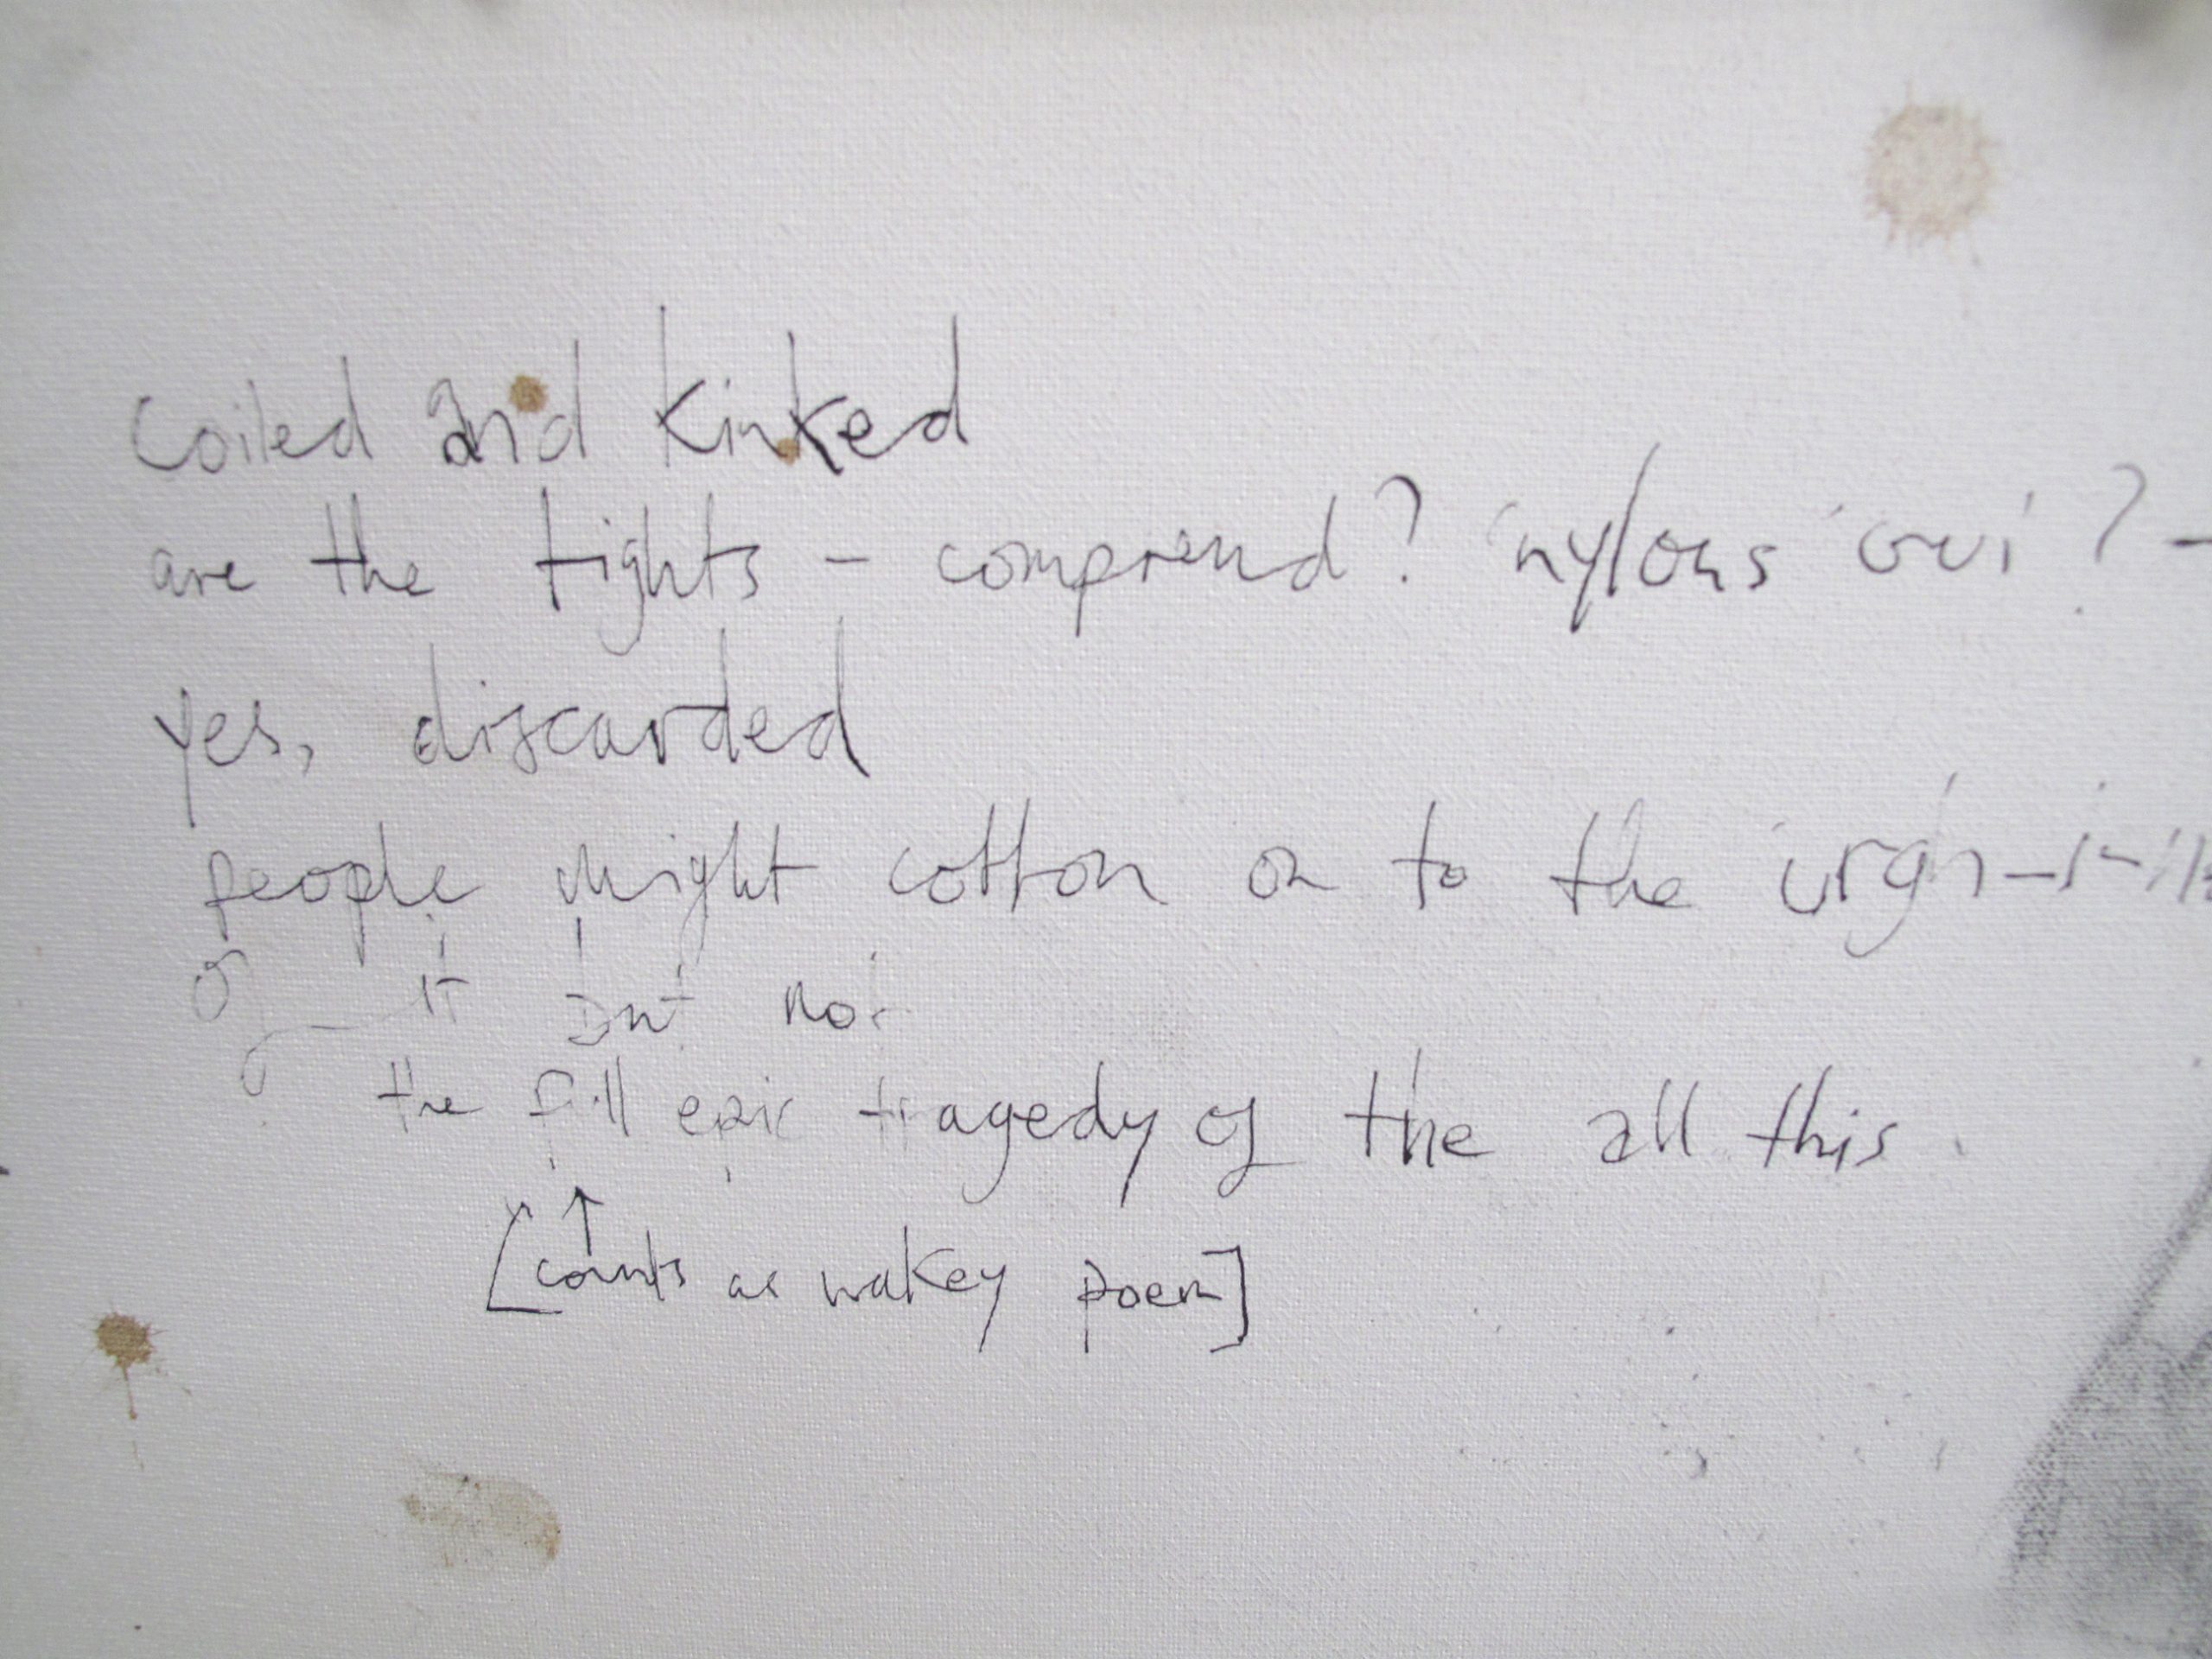 Coiled and kinked
are the tights – comprend? 'nylons' oui? –
yes, discarded
people might cotton on to the
of it but not
the full epic tragedy of the all this.
[↑ counts as wakey poem]